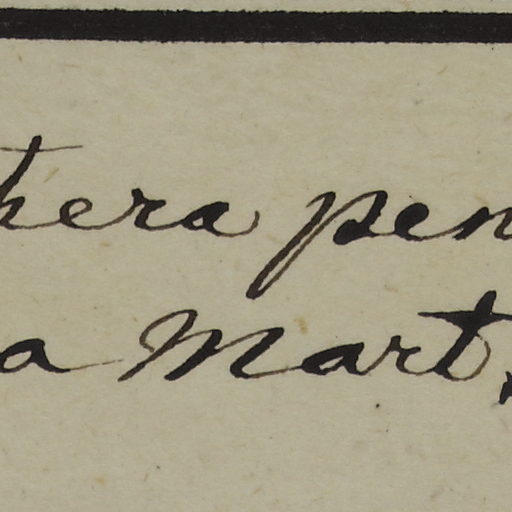 thera pen
a Mart.